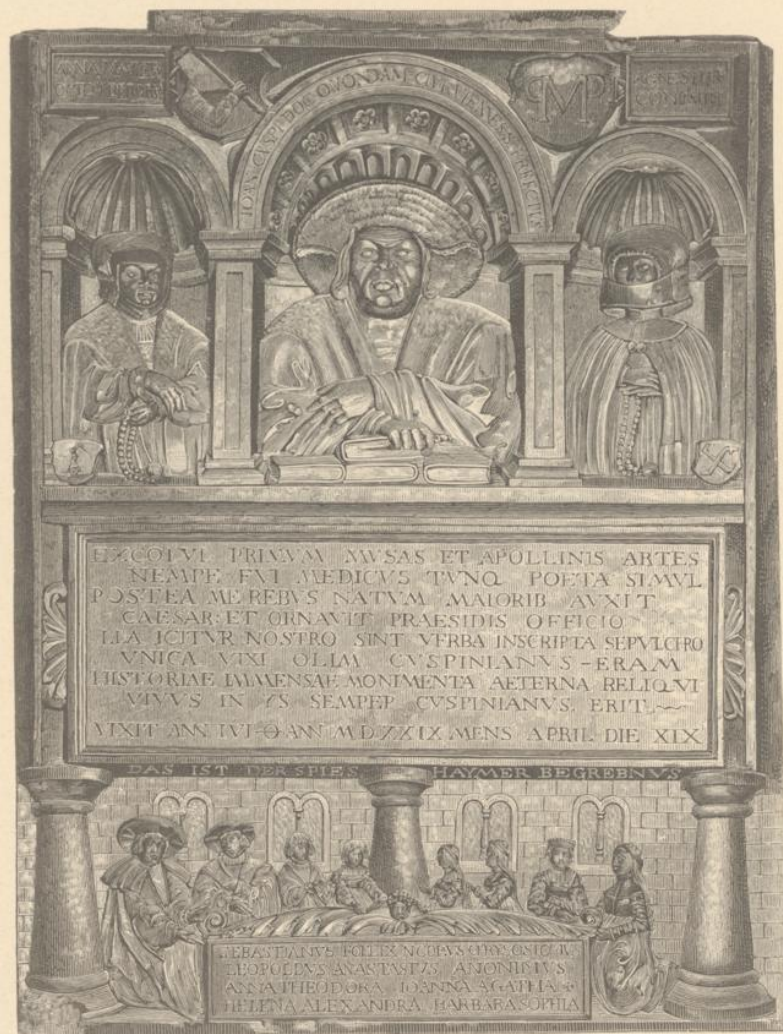 ANNA MATER
AGNES
IOAN CVSPI DOC QVONDAM CIVI VIENNESS PREFECTVS
EXCOLVI PRIMVM MVSAS ET APOLLINIS ARTES
NEMPE FVI MEDICVS TVNQ POETA SIMVL
POSTEA ME REBVS NATVM MAIORIB AVXIT
CAESAR: ET ORNAVIT PRAESIDIS OFFICIO
ILLA IGITVR NOSTRO SINT VERBA INSCRIPTA SEPVLCHRO
VNICA VIXI OLIM CVSPINIANVS-ERAM
HISTORIAE IMMENSAE MONIMENTA AETERNA RELIQVI
VIVVS IN YS SEMPER CVSPINIANVS ERIT
VIXIT ANN IVI-O ANN M.D.XXIX MENS APRIL DIE XIX
DAS IST DER SPIES HAYMER BEGREBNVS
SEBASTIANVS FELIX NCOLVS
LEOPOLLVS ANASTASIVS ANONIMVS
ANNA THEODORA IOANNA AGATHA
HELENA ALEXANDRA BARBARA SOPHIA